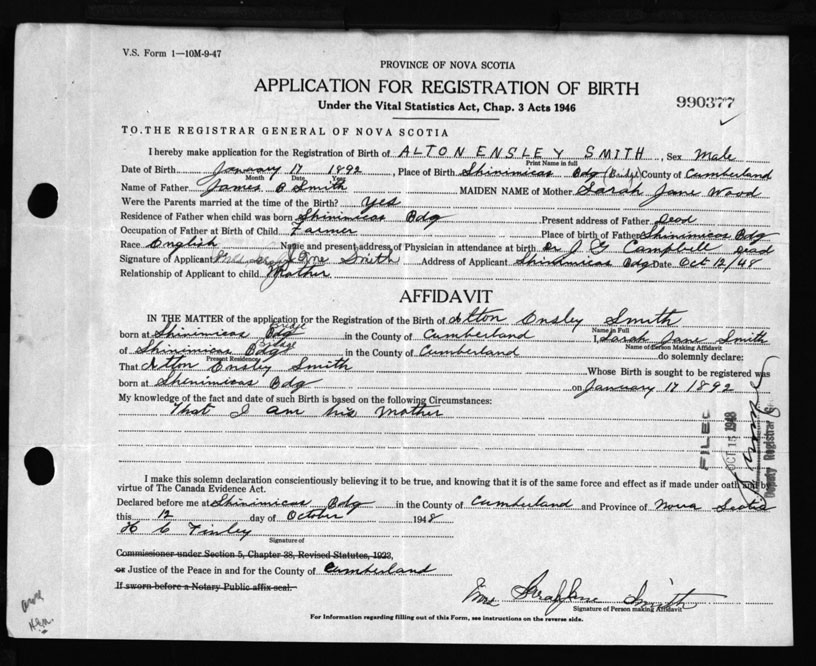 V.S. Form 1—10M-9-47
PROVINCE OF NOVA SCOTIA
APPLICATION FOR REGISTRATION OF BIRTH
Under the Vital Statistics Act, Chap. 3 Acts 1946
990377
TO THE REGISTRAR GENERAL OF NOVA SCOTIA
I hereby make application for the Registration of Birth of ALTON ENSLEY SMITH, Sex Male
Print Name in full
Date of Birth January 17 1892, Place of Birth Shinimicas Bdg (Bridge) County of Cumberland
Month Date Year
Name of Father James B Smith MAIDEN NAME of Mother Sarah Jane Wood
Were the Parents married at the time of the Birth? yes
Residence of Father when child was born Shinimicas Bdg Present address of Father Dead
Occupation of Father at Birth of Child Farmer Place of birth of Father Shinimicas Bdg
Race English Name and present address of Physician in attendance at birth Dr J G Campbell Dead
Signature of Applicant Mrs Sarah Jane Smith Address of Applicant Shinimicas Bdg Date Oct 12/48
Relationship of Applicant to child Mother
AFFIDAVIT
IN THE MATTER of the application for the Registration of Birth of Alton Ensley Smith
Name in Full
born at Shinimicas Bdg Bridge in the County of Cumberland I, Sarah Jane Smith
Name of Person Making Affidavit
of Shinimicas Bdg Bridge in the County of Cumberland do solemnly declare:
Present Residence
That Alton Ensley Smith Whose Birth is sought to be registered was
born at Shinimicas Bdg on January 17 1892
My knowledge of the fact and date of such Birth is based on the following Circumstances:
That I am his Mother
FILED
OCT 15 1948
Deputy Registrar
I make this solemn declaration conscientiously believing it to be true, and knowing that it is of the same force and effect as if made under oath and by
virtue of The Canada Evidence Act.
Declared before me at Shinimicas Bdg in the County of Cumberland and Province of Nova Scotia
this 12 day of October 1948
H C Finley
Signature of
Commissioner under Section 5, Chapter 38, Revised Statutes, 1923,
or Justice of the Peace in and for the County of Cumberland
If sworn before a Notary Public affix seal.
Mrs Sarah Jane Smith
Signature of Person making Affidavit
For Information regarding filling out of this Form, see instructions on the reverse side.